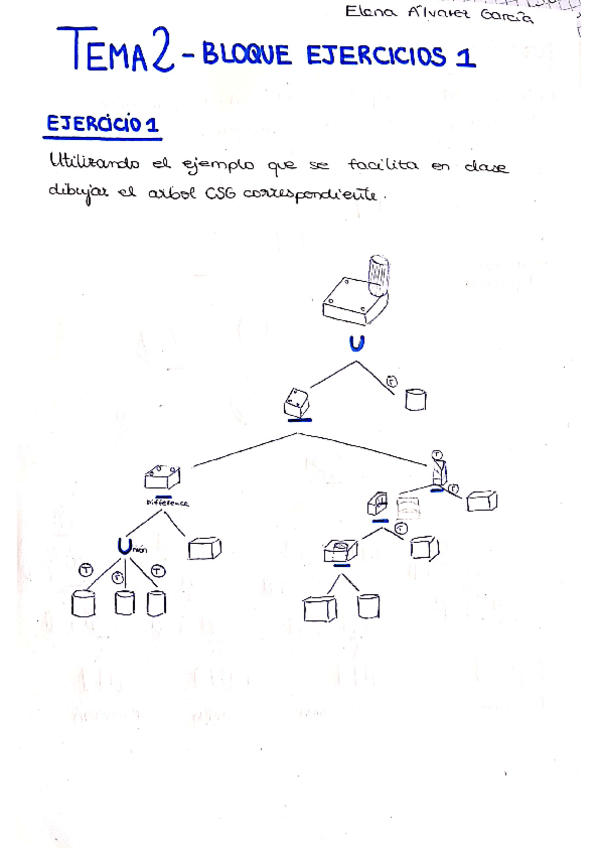 Elena Álvarez García
TEMA 2 - BLOQUE EJERCICIOS 1
EJERCICIO 1
Utilizando el ejemplo que se facilita en clase
dibujar el arbol CSG correspondiente.
U
T
T
Difference
T
Unión
T
T
T
T